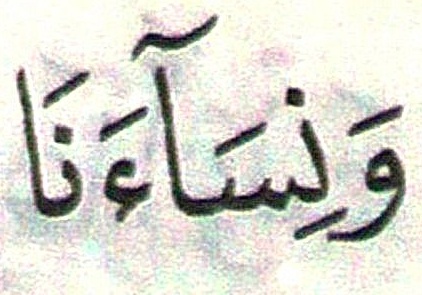 وَنِسَآءَنَا